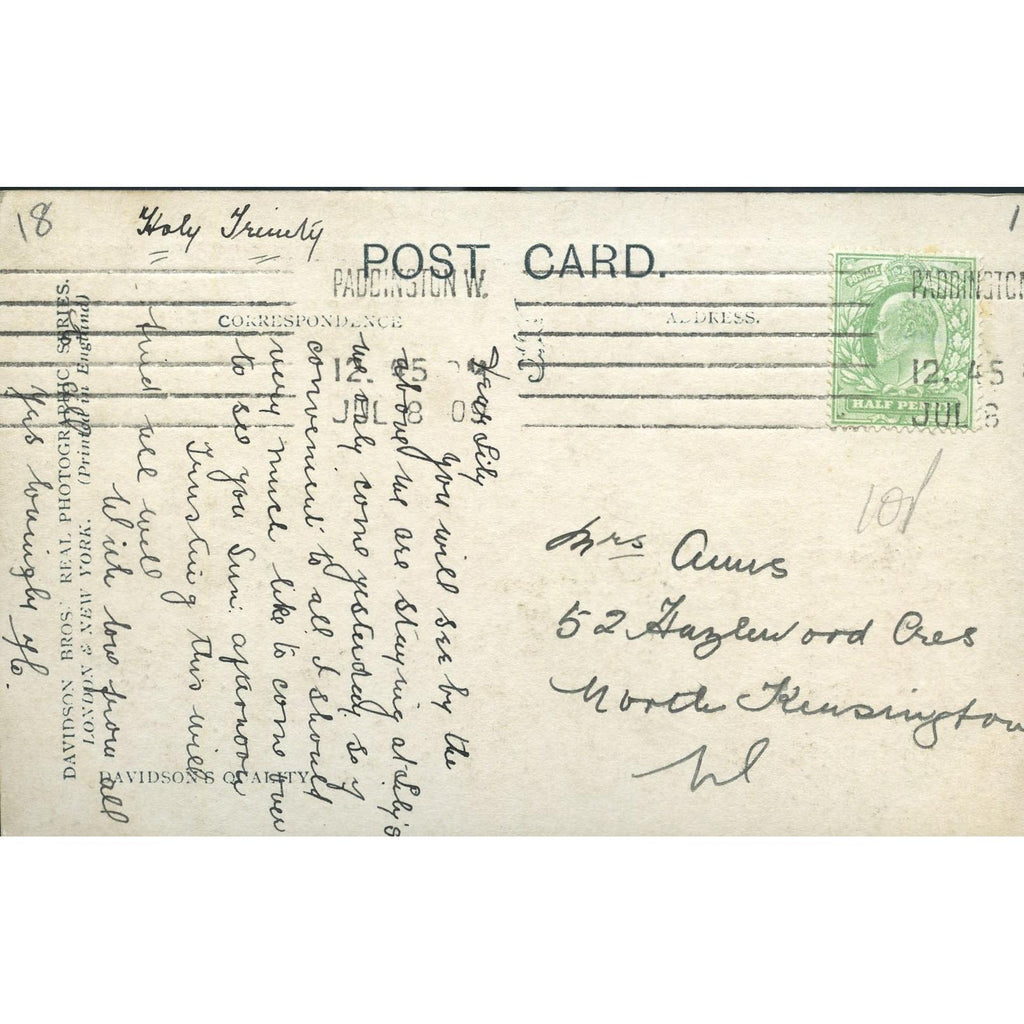 18
Holy Trinity
POST CARD.
PADDINGTON W.
12. 45
JUL 8 0
CORRESPONDENCE
ADDRESS.
PADDINGTON
12. 45
JUL 8
HALF PEN
Dear Lily
you will see by the
above we are staying at Lily's
we only come yesterday so if
convenient to all I should
very much like to come over
to see you Sun: afternoon
Trusting this will
find all well
With love from all
Yrs lovingly
DAVIDSON BROS. REAL PHOTOGRAPHIC SERIES.
LONDON & NEW YORK. (Printed in England)
DAVIDSON'S QUALITY
10d
Mrs Anns
52 Hazlewood Cres
North Kensington
W